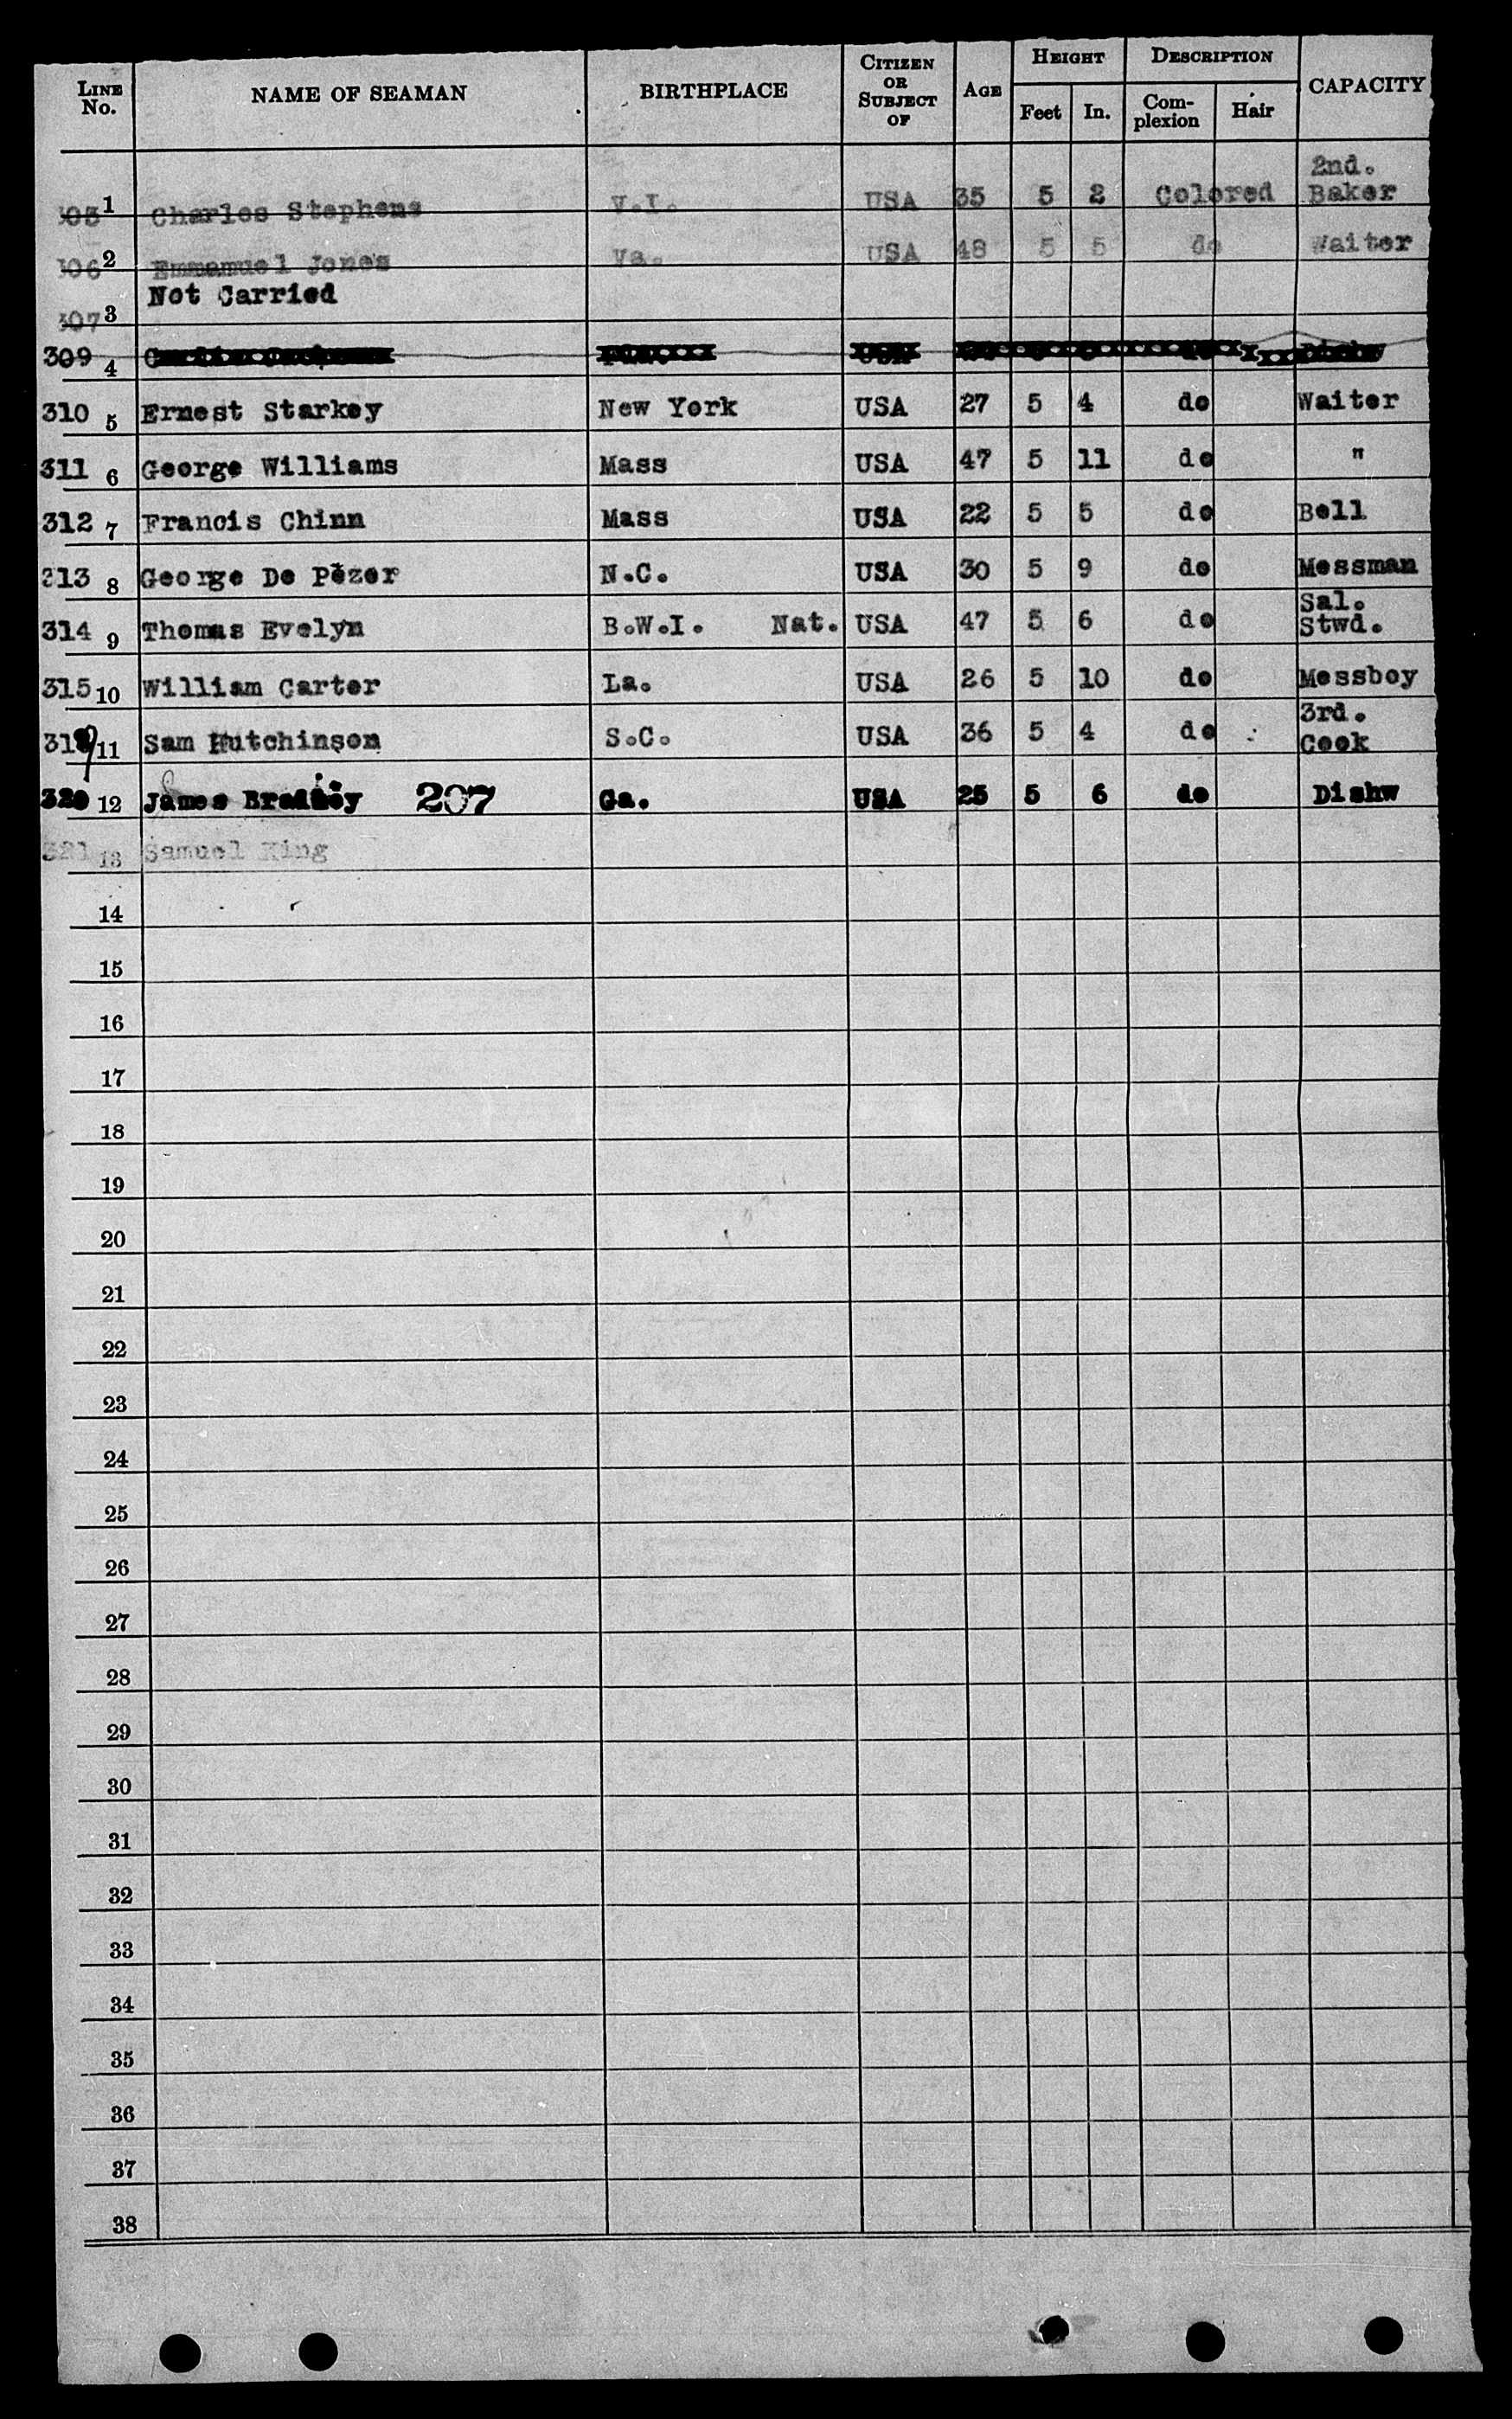 LINE No. NAME OF SEAMAN BIRTHPLACE CITIZEN OR SUBJECT OF AGE HEIGHT Feet In. DESCRIPTION Complexion Hair CAPACITY
305 1 Charles Stephens V.I. USA 35 5 2 Colored 2nd. Baker
306 2 Emmamuel Jones Va. USA 48 5 5 do Waiter
Not Carried
307 3
309 4 USA
310 5 Ernest Starkey New York USA 27 5 4 do Waiter
311 6 George Williams Mass USA 47 5 11 do "
312 7 Francis Chinn Mass USA 22 5 5 do Bell
313 8 George De Pezer N.C. USA 30 5 9 do Messman
314 9 Thomas Evelyn B.W.I. Nat. USA 47 5 6 do Sal. Stwd.
315 10 William Carter La. USA 26 5 10 do Messboy
319 11 Sam Hutchinson S.C. USA 36 5 4 do 3rd. Cook
320 12 James 207 Ga. USA 25 5 6 do Dishw
321 13 Samuel King
14
15
16
17
18
19
20
21
22
23
24
25
26
27
28
29
30
31
32
33
34
35
36
37
38